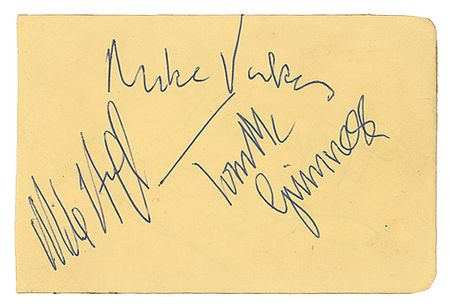 Mike Vickers
Mike Hugg
Tom Mc
Guinness